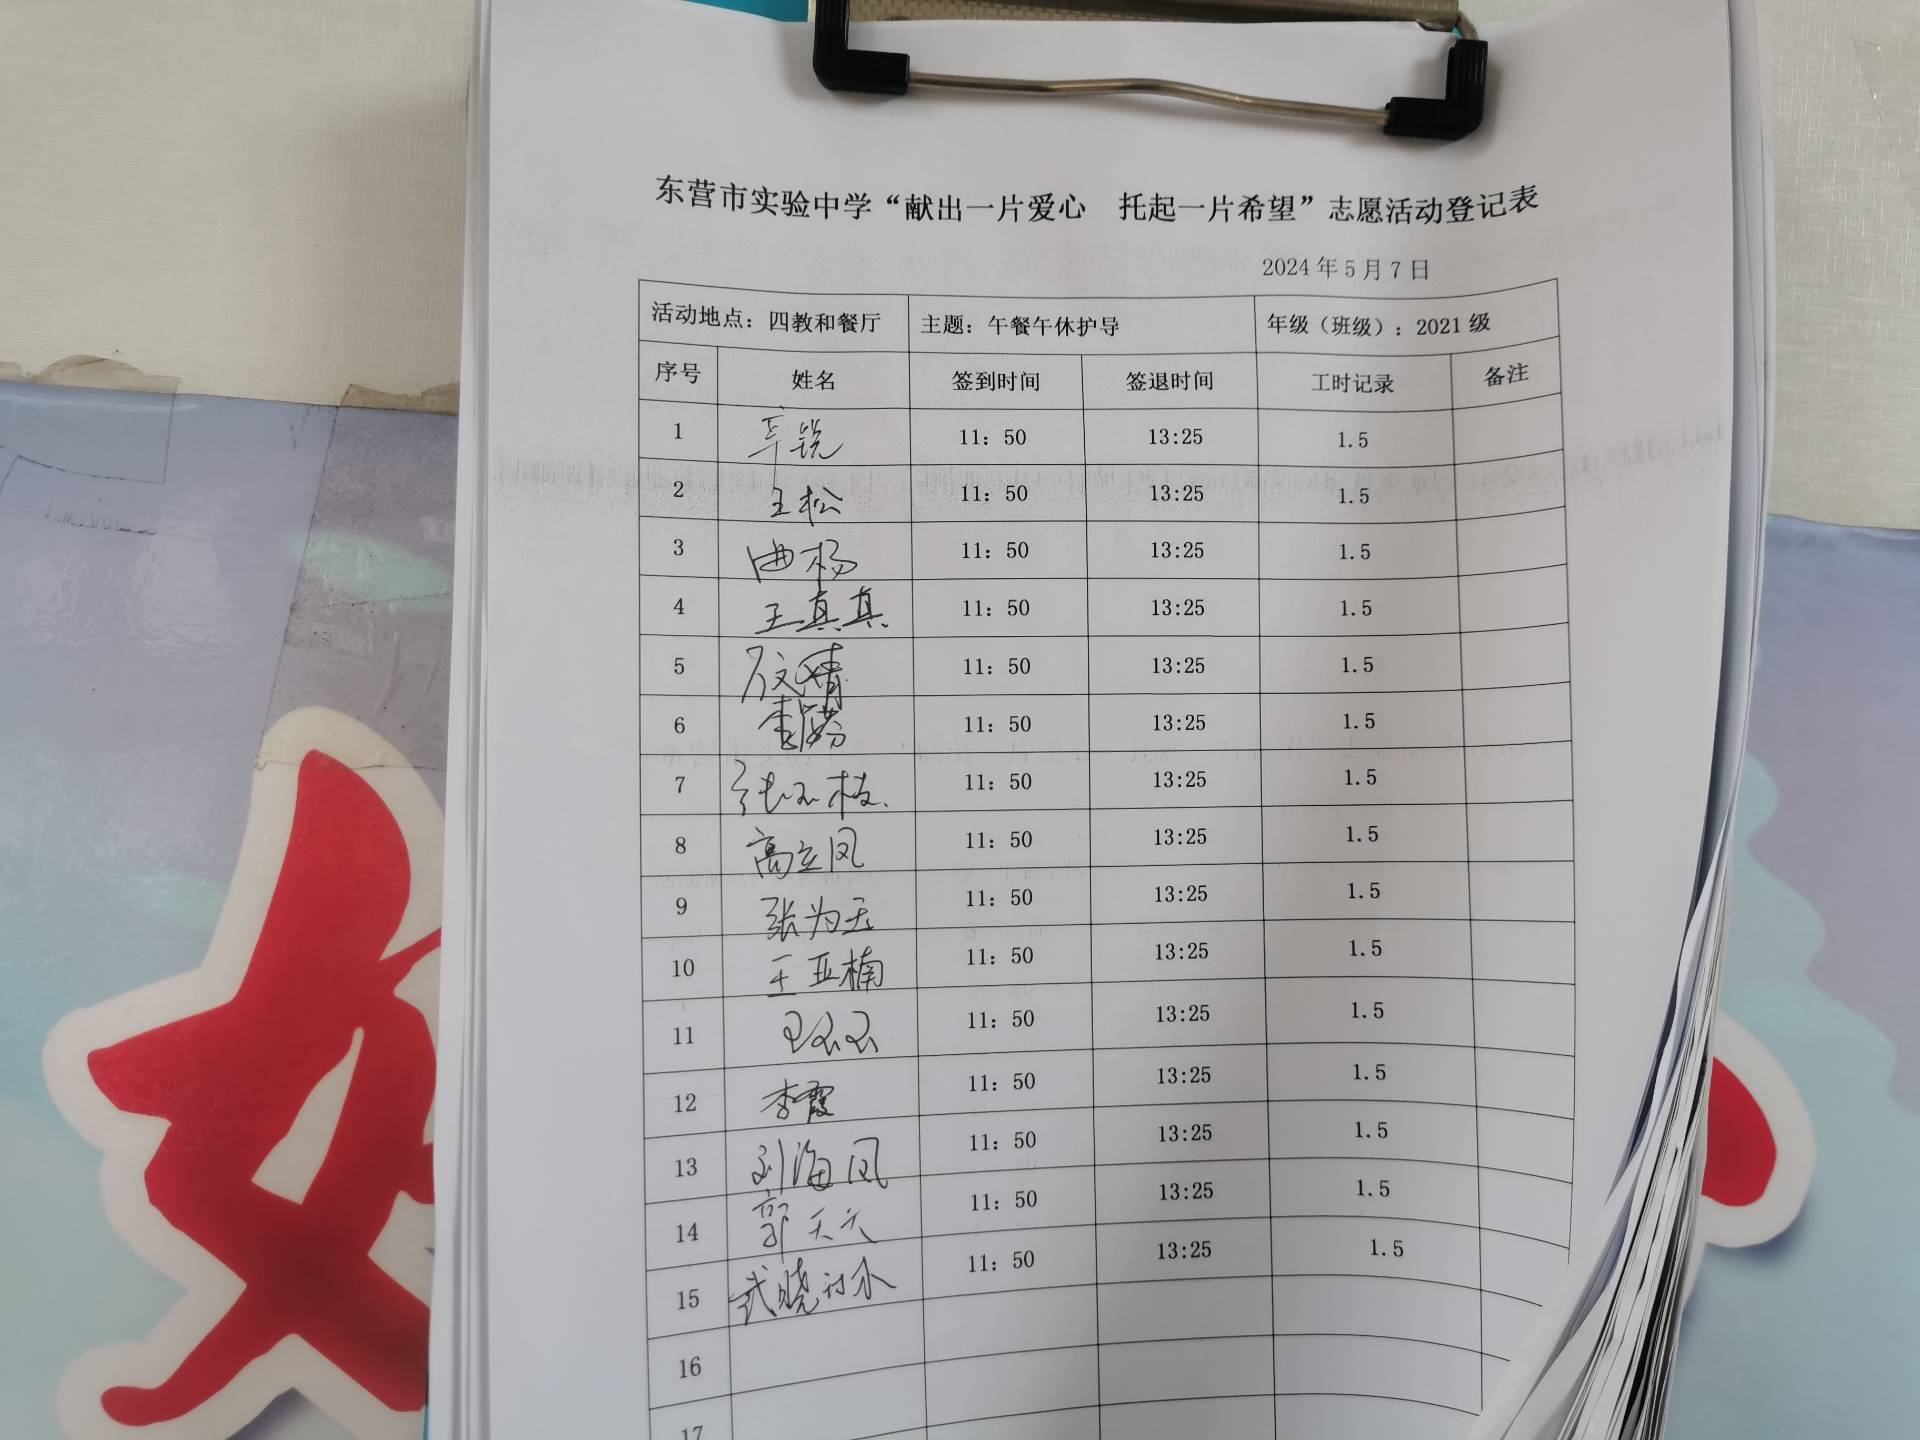 东营市实验中学“献出一片爱心 托起一片希望”志愿活动登记表
2024年5月7日
活动地点：四教和餐厅 主题：午餐午休护导 年级（班级）：2021级
序号 姓名 签到时间 签退时间 工时记录 备注
1 11：50 13:25 1.5
2 王松 11：50 13:25 1.5
3 曲杨 11：50 13:25 1.5
4 王真真 11：50 13:25 1.5
5 11：50 13:25 1.5
6 11：50 13:25 1.5
7 张玉枝 11：50 13:25 1.5
8 高立凤 11：50 13:25 1.5
9 张为玉 11：50 13:25 1.5
10 王亚楠 11：50 13:25 1.5
11 11：50 13:25 1.5
12 李霞 11：50 13:25 1.5
13 刘海凤 11：50 13:25 1.5
14 郭天天 11：50 13:25 1.5
15 11：50 13:25 1.5
16
17